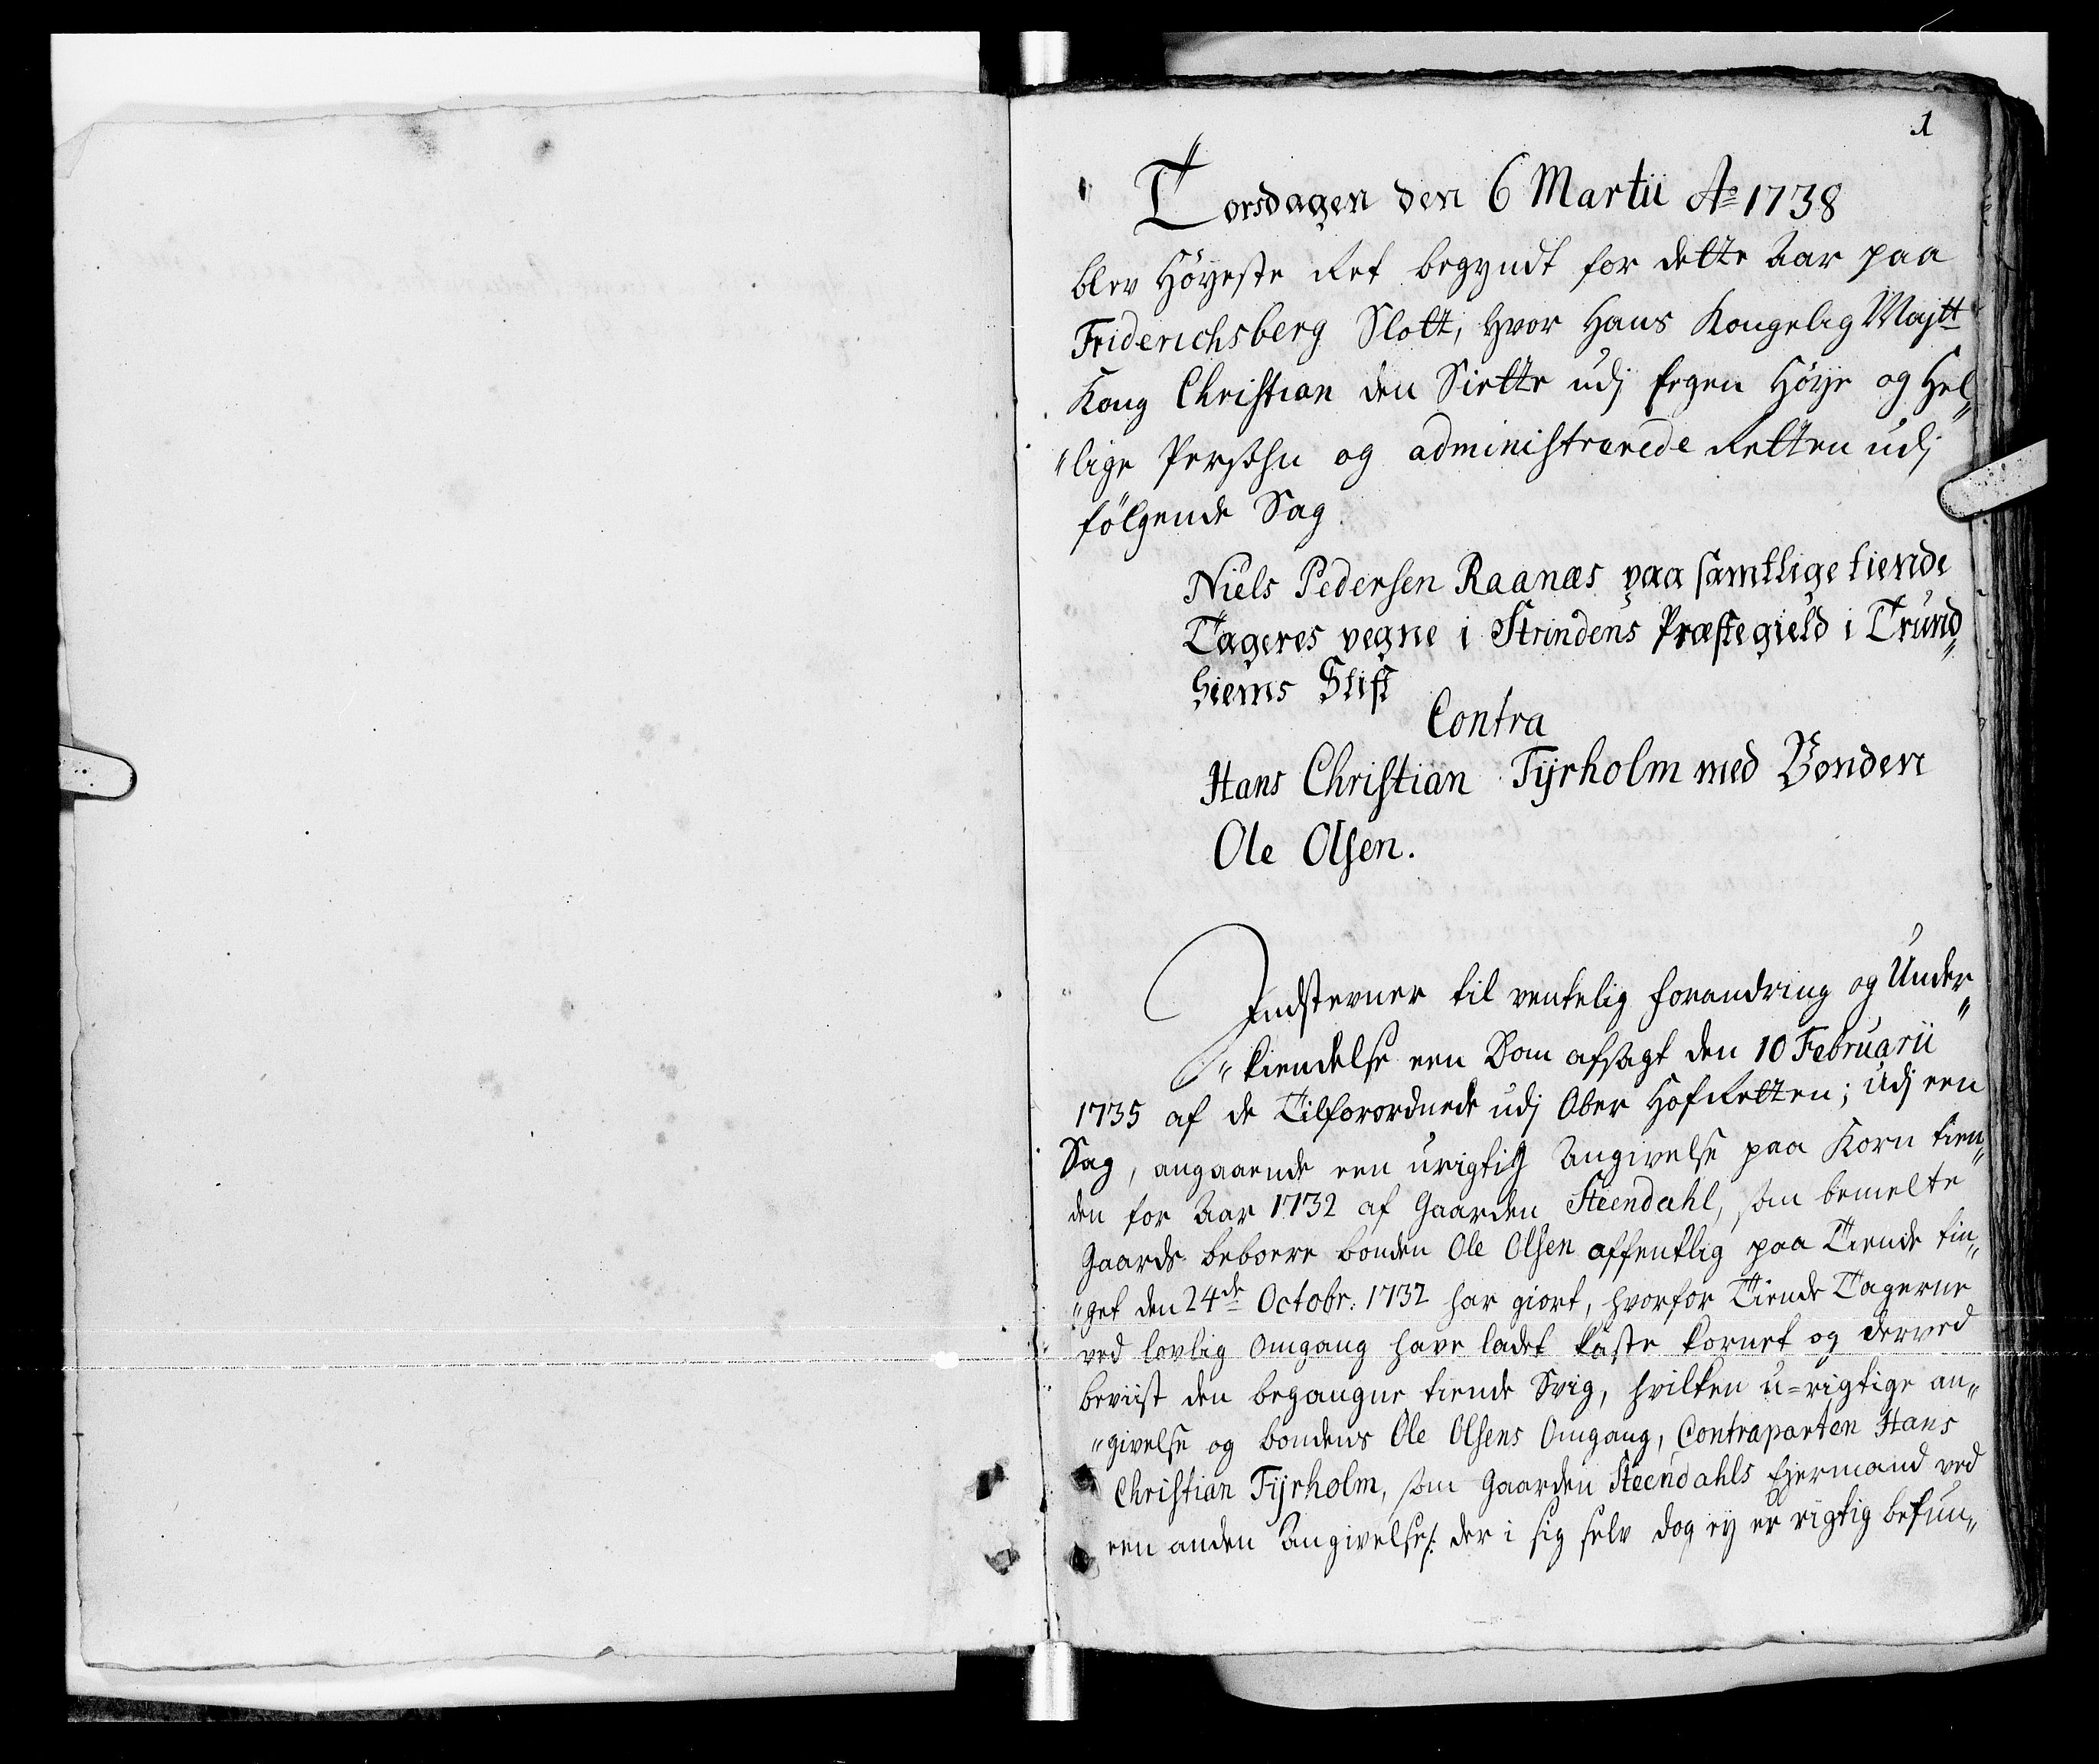 1
Torsdagen den 6 Martii Ao 1738
blev Höyeste Ret begyndt for dette Aar paa
Friderichsberg Slott, hvor Hans Kongelig Maÿtt
Kong Christian den Siette udj Eegen Höye og Hel„
„lige Persohn og administrerede Retten udj
fölgende Sag
Niels Pedersen Raanæs paa samtlige tiende
Tageres vegne i Strindens Præstegield i Trund„
hiems Stift
Contra
Hans Christian Tÿrholm med Bonden
Ole Olsen.
Indstevner til ventelig forandring og Under„
„kiendelse een Dom afsagt den 10 Februarii
1735 af de Tilforordnede udj Ober HofRetten; udj een
Sag, angaaende een urigtig Angivelse paa Korn tien„
den for Aar 1732 af Gaarden Steendahl, som bemelte
Gaards beboere bonden Ole Olsen offentlig paa Tiende tin„
„get den 24de Octobr: 1732 har giort, hvorfor Tiende Tagerne
ved lovlig Omgang have ladet kaste kornet og derved
beviist den begangne tiende Svig, hvilken u=rigtige an„
„givelse og bondens Ole Olsens Omgang, Contraparten Hans
Christian Tÿrholm, som Gaarden Steendahls Ejermand ved
een anden Angivelse /: der i sig selv dog ey er rigtig befun„